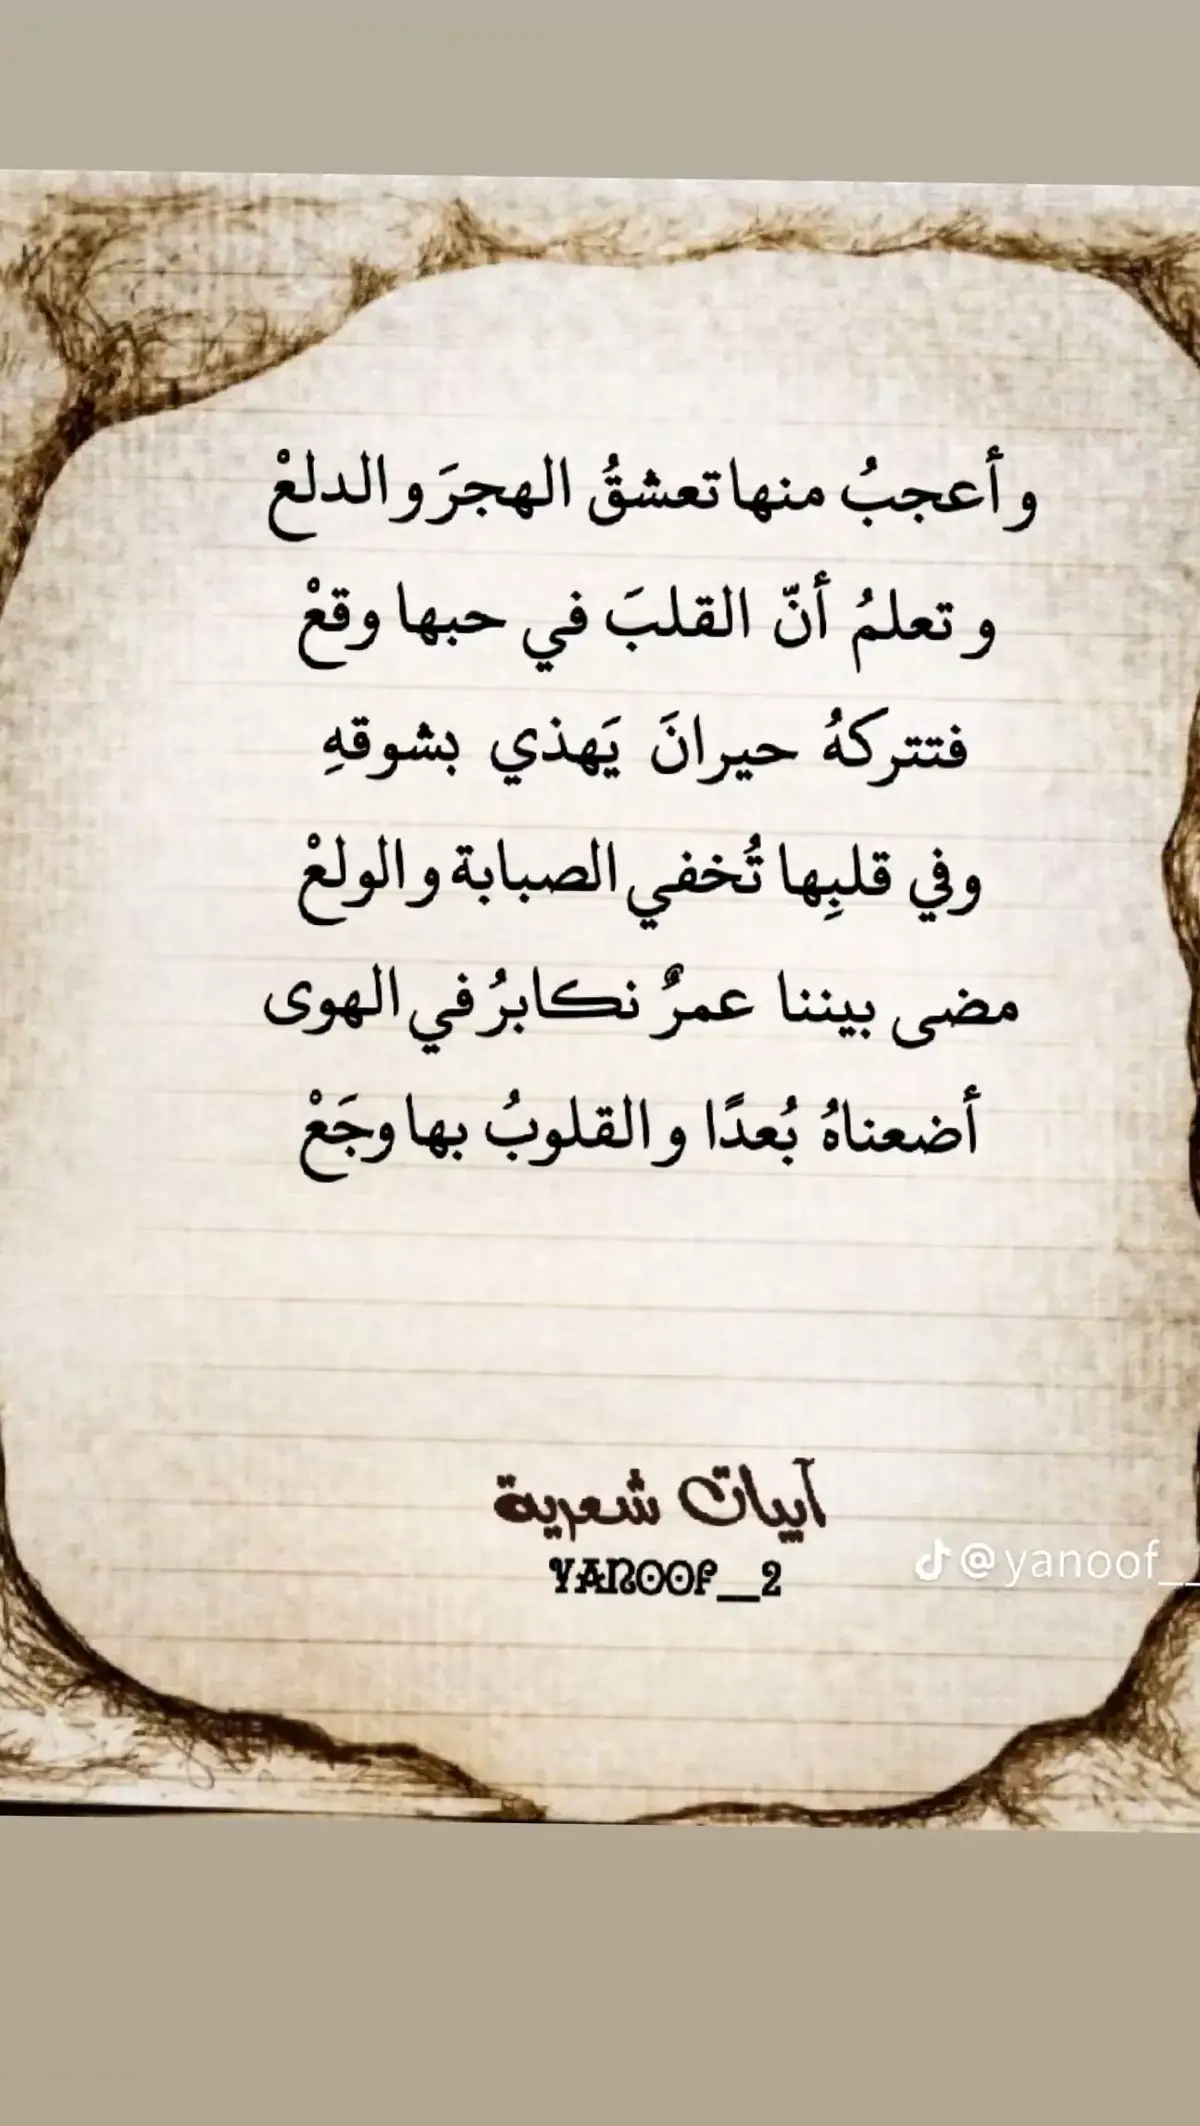 وأعجبُ منها تعشقُ الهجرَ والدلعْ
وتعلمُ أنّ القلبَ في حبها وقعْ
فتتركهُ حيرانَ يَهذي بشوقهِ
وفي قلبِها تُخفي الصبابة والولعْ
مضى بيننا عمرٌ نكابرُ في الهوى
أضعناهُ بُعدًا والقلوبُ بها وجَعْ
آبيات شعرية
YANOOF__2
@yanoof__